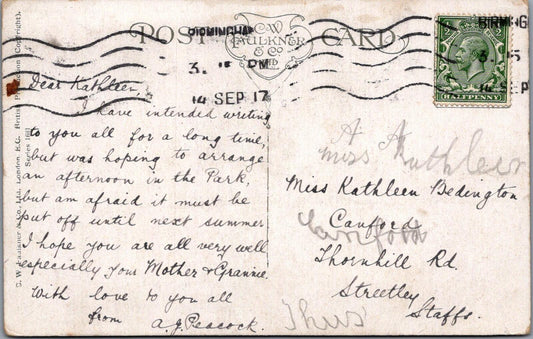 POST CARD
C.W.
FAULKNER
& Co.
LTD
BIRMINGHAM
3. 15 PM
14 SEP 17
BIRMING
3. 15
14 SEP
HALFPENNY
C. W. Faulkner & Co., Ltd., London, E.C. British Production (Copyright).
Series 1691
Dear Kathleen,
I have intended writing
to you all for a long time,
but was hoping to arrange
an afternoon in the Park,
but am afraid it must be
put off until next summer
I hope you are all very well
especially your Mother & Grannie.
With love to you all
from A. G. Peacock.
A A
Miss Kathleen
Miss Kathleen Bedington
Canford
Canford
Thornhill Rd.
Streetley
Staffs.
Thus